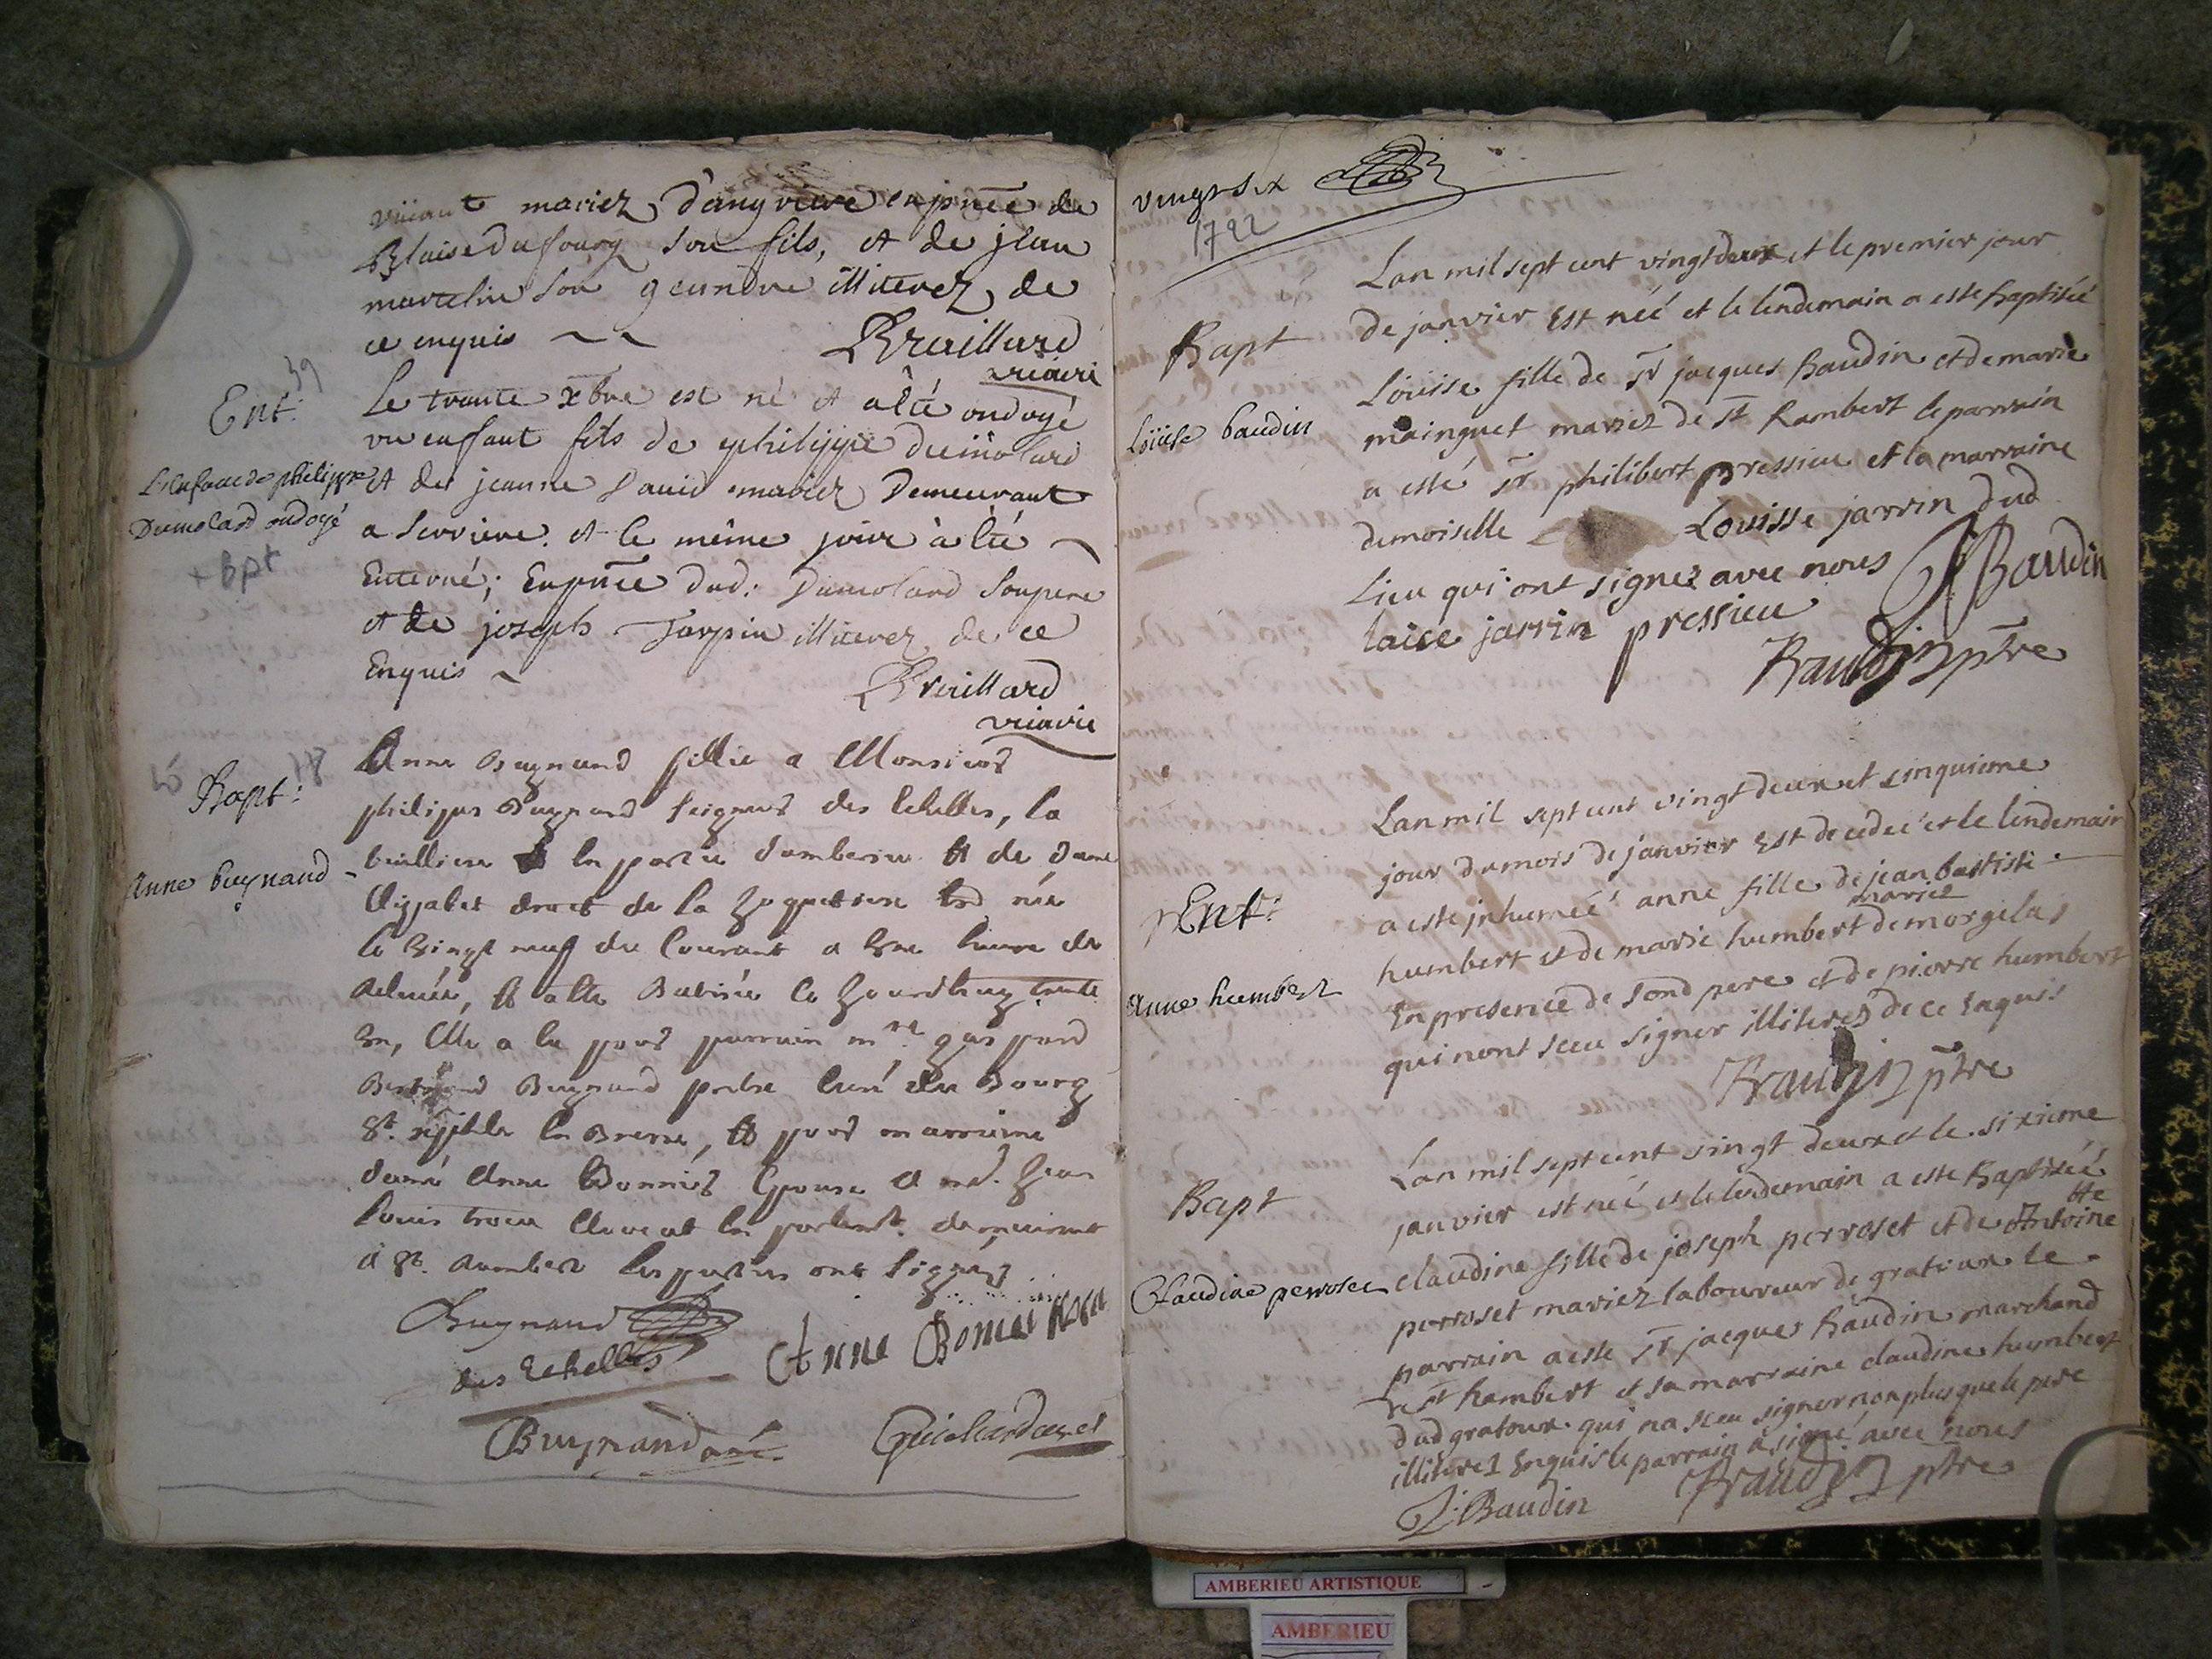 vivant mariez d'angriere enpnce de
Blaise dufourg son fils, et de jean
marcelin son genndre illiterez de
ce enquis
Braillard
vicaire
39
Ent:
L'enfant de philippe
Dumolard ondoyé
+ bpt
Le trante xbre est né et a été ondoyé
un enffant fils de philippe dumolard
et de jeanne mariez Demeurant
a Serriere. et le même jour à été
Enterré; Enpnce dud. Dumolard Son pere
et de joseph Tarpin illiterez de ce
Enquis
Braillard
vicaire
Bapt:
anne buynand
Anne Buynand fillie a Monsieur
philipes Buynand seigneur des Echelles, la
en partie d'amberieu et de dame
de la née
le vingt neuf du Courant a heure de
relevée, et a été Batisée le jourdhuy trente
un, Elle a eu pour parrain mre gaspard
Buynand prebtre Curé du Bourg
St. en Bresse, et pour marrainne
dame Anne Bonnet Epouse a mr. Jean
Louis trocu avocat en parlemt. demeurant
a St. Rambert les parties ont signées
Buynand
des Echelles
Anne Bonnet
Buynand curé
Guichardcuret
vingt six
1722
Bapt
Loüise baudin
Lan mil sept cent vingt deux et le premier jour
de janvier Est née et le lendemain a este baptisée
Loüise fille de Sr jacques Baudin et de marie
mainguet mariez de St Rambert le parrain
a esté Sr philibert pressieu et la marraine
demoiselle Louisse jarrin dud
Lieu qui ont signez avec nous
JBaudin
laise jarrin pressieu
Baudin ptre
Ent:
Anne humbert
Lan mil sept cent vingt deux et cinquieme
jour du mois de janvier Est decedeé et le lendemain
a este jnhumeé anne fille de jean baptiste
mariez
humbert et de marie humbert de morgelas
En presence de sond pere et de pierre humbert
qui nont sceu signer illiterez de ce Enquis
Baudin ptre
Bapt
Claudine perroset
Lan mil sept cent vingt deux et le sixieme
janvier est neé et le lendemain a este Baptiseé
tte
claudine fille de joseph perroset et de Antoine
perroset mariez laboureur de gratoux le
parrain a este Sr jacques baudin marchand
de St Rambert et sa marraine claudine humbert
dud gratoux qui na sceu signer non plus que le pere
illiterez Enquis le parrain a signé avec nous
J. Baudin
Baudin ptre
AMBERIEU ARTISTIQUE
AMBERIEU